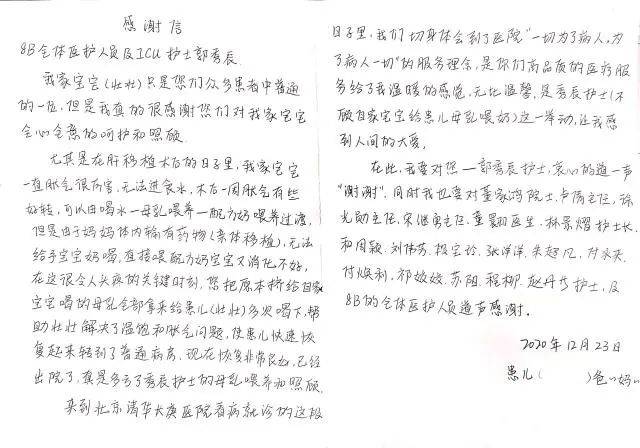 感谢信
8B全体医护人员及ICU护士郭秀辰
我家宝宝(壮壮)只是您们众多患者中普通
的一位,但是我真的很感谢您们对我家宝宝
全心全意的呵护和照顾.
尤其是在肝移植术后的日子里,我家宝宝
一直胀气很厉害,无法进食水,术后一周胀气有些
好转,可以由喝水一母乳喂养一配方奶喂养过渡,
但是由于妈妈体内输有药物(亲体移植),无法
给予宝宝奶喝,直接喂配方奶宝宝又消化不好,
在这很令人头疼的关键时刻,您把原本挤给自家
宝宝喝的母乳全部拿来给患儿(壮壮)多次喝下,帮
助壮壮解决了温饱和胀气问题,使患儿快速恢
复起来转到了普通病房.现在恢复非常良好,已经
出院了,真是多亏了秀辰护士的母乳喂养和照顾.
来到北京清华长庚医院看病就诊的这段
日子里,我们切身体会到了医院"一切为了病人,为
了病人一切"的服务理念,是您们高品质的医疗服
务给了我温暖的感觉,无比温馨,是秀辰护士(不
顾自家宝宝给患儿母乳喂奶)这一举动,让我感
到人间的大爱.
在此,我要对您一郭秀辰护士,衷心的道一声
"谢谢".同时我也要对董家鸿院士,卢倩主任,徐
光勋主任,宋继勇主任,董翾医生,林景熠护士长,
和周颖,刘伟芬,张洋洋,
付焕利,祁姣姣,苏阳,程柳,赵丹丹护士,及
8B的全体医护人员道声感谢.
2020年12月23日
患儿( )爸"妈"